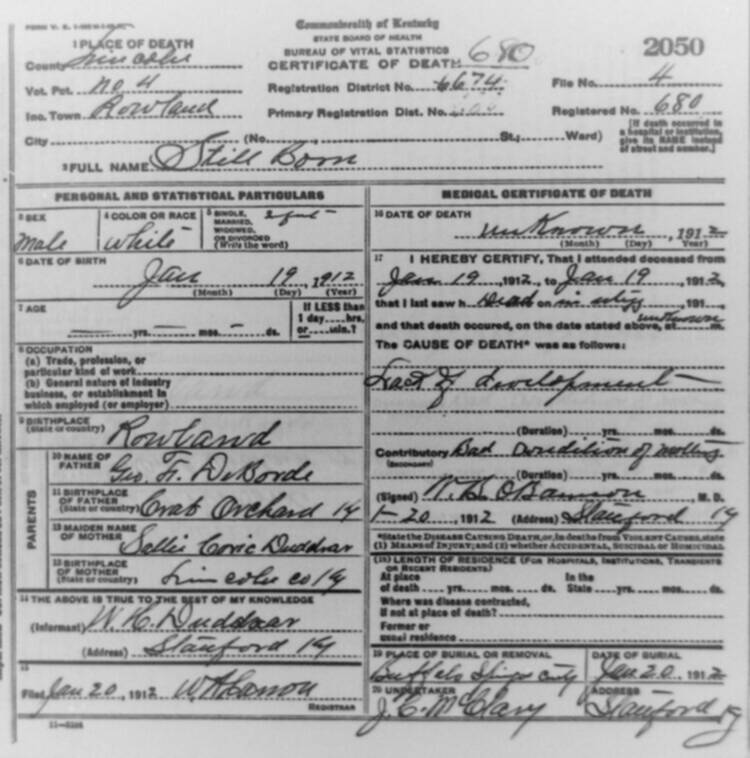 Commonwealth of Kentucky
STATE BOARD OF HEALTH
BUREAU OF VITAL STATISTICS
CERTIFICATE OF DEATH 680
2050
1 PLACE OF DEATH
County Lincoln
Vot. Pct. No. 4
Inc. Town Rowland
Registration District No. 6674
File No. 4
Primary Registration Dist. No.
Registered No. 680
City (No. St.; Ward)
[If death occurred in a hospital or institution, give its NAME instead of street and number.]
2 FULL NAME Still Born
PERSONAL AND STATISTICAL PARTICULARS
3 SEX
Male
4 COLOR OR RACE
White
5 SINGLE, MARRIED, WIDOWED, OR DIVORCED (Write the word)
6 DATE OF BIRTH
Jan 19 1912
(Month) (Day) (Year)
7 AGE
If LESS than 1 day hrs. or min.?
yrs. mos. ds.
8 OCCUPATION
(a) Trade, profession, or particular kind of work
(b) General nature of industry business, or establishment in which employed (or employer)
9 BIRTHPLACE
(State or country) Rowland
PARENTS
10 NAME OF FATHER Geo. F. DeBorde
11 BIRTHPLACE OF FATHER (State or country) Crab Orchard Ky
12 MAIDEN NAME OF MOTHER Sallie Dudderar
13 BIRTHPLACE OF MOTHER (State or country) Lincoln co Ky
14 THE ABOVE IS TRUE TO THE BEST OF MY KNOWLEDGE
(Informant) W. H. Dudderar
(Address) Stanford Ky
15
Filed Jan 20, 1912
REGISTRAR
11-3184
MEDICAL CERTIFICATE OF DEATH
16 DATE OF DEATH
unKnown, 1912
(Month) (Day) (Year)
17 I HEREBY CERTIFY, That I attended deceased from
Jan 19, 1912, to Jan 19, 1912,
that I last saw h Dead on, 191
and that death occured, on the date stated above, at unknown m.
The CAUSE OF DEATH* was as follows:
Lack of development
(Duration) yrs. mos. ds.
Contributory Bad Condition of mother
(SECONDARY)
(Duration) yrs. mos. ds.
(Signed) W. B. O'Bannon, M. D.
1-20, 1912 (Address) Stanford Ky
*State the DISEASE CAUSING DEATH, or, in deaths from VIOLENT CAUSES, state
(1) MEANS OF INJURY; and (2) whether ACCIDENTAL, SUICIDAL or HOMICIDAL
(18) LENGTH OF RESIDENCE (FOR HOSPITALS, INSTITUTIONS, TRANSIENTS OR RECENT RESIDENTS)
At place of death yrs. mos. ds. In the State yrs. mos. ds.
Where was disease contracted, if not at place of death?
Former or usual residence
19 PLACE OF BURIAL OR REMOVAL
Buffalo Springs
DATE OF BURIAL
Jan 20, 1912
20 UNDERTAKER
J. C. McClary
ADDRESS
Stanford Ky